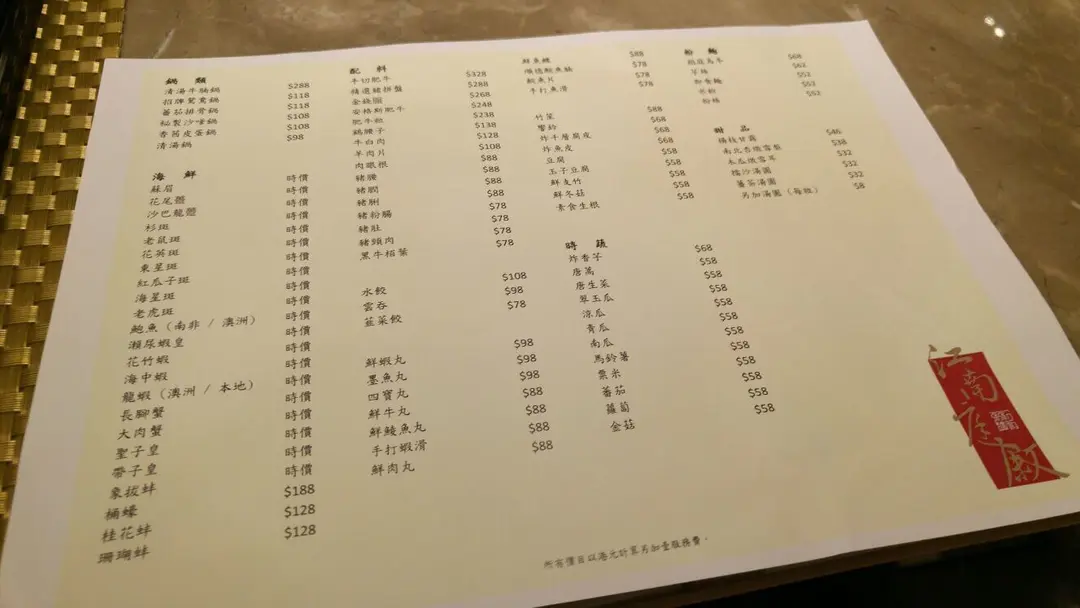 鍋 類
清湯牛腩鍋 $288
招牌鴛鴦鍋 $118
蕃茄排骨鍋 $118
秘製沙嗲鍋 $108
香茜皮蛋鍋 $108
清湯鍋 $98
海 鮮
蘇眉 時價
花尾躉 時價
沙巴龍躉 時價
杉斑 時價
老鼠斑 時價
花英斑 時價
東星斑 時價
紅瓜子斑 時價
海星斑 時價
老虎斑 時價
鮑魚 (南非 / 澳洲) 時價
瀨尿蝦皇 時價
花竹蝦 時價
海中蝦 時價
龍蝦 (澳洲 / 本地) 時價
長腳蟹 時價
大肉蟹 時價
聖子皇 時價
帶子皇 時價
象拔蚌 時價
桶蠔 $188
桂花蚌 $128
珊瑚蚌 $128
配 料
手切肥牛
精選豬拼盤
安格斯肥牛
肥牛粒
鵝腰子
牛白肉
羊肉片
肉眼根
豬腰
豬膶
豬脷
豬粉腸
豬肚
豬頸肉
黑牛栢葉
$328
$288
$268
$248
$138
$128
$108
$88
$88
$88
$78
$78
$78
$78
水餃 $108
雲吞 $98
韮菜餃 $78
鮮蝦丸 $98
墨魚丸 $98
四寶丸 $98
鮮牛丸 $88
鮮鯪魚丸 $88
手打蝦滑 $88
鮮肉丸 $88
$88
順德鯪魚腐 $78
鯇魚片 $78
手打魚滑
竹笙 $88
響鈴 $68
炸千層腐皮 $68
炸魚皮 $68
豆腐 $58
玉子豆腐 $58
鮮支竹 $58
鮮冬菇 $58
素食生根
時 蔬
炸香芋 $68
唐蒿 $58
唐生菜 $58
翠玉瓜 $58
涼瓜 $58
青瓜 $58
南瓜 $58
馬鈴薯 $58
粟米 $58
蕃茄 $58
蘿蔔 $58
金菇
粉 麵
稻庭烏冬 $68
$62
$52
$52
$52
甜 品
楊枝甘露 $46
南北杏燉雪梨 $38
木瓜燉雪耳 $32
擂沙湯圓 $32
薑茶湯圓 $32
另加湯圓 (每粒) $8
江南庭廚
所有價目以港元計算另加壹服務費。